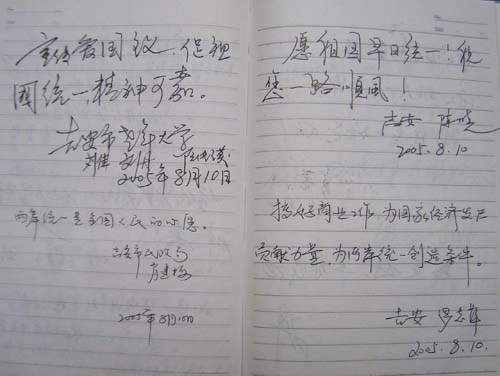 宣传爱国致,促祖
国统一,精神可嘉。
吉安市老年大学
2005年8月10日
两岸统一是全国人民的心愿。
吉安市民政局
2005年8月10日
愿祖国早日统一!祝
您一路顺风!
吉安
2005.8.10
搞好商业工作,为国家经济发展
贡献力量,为两岸统一创造条件。
吉安 罗志辉
2005.8.10.